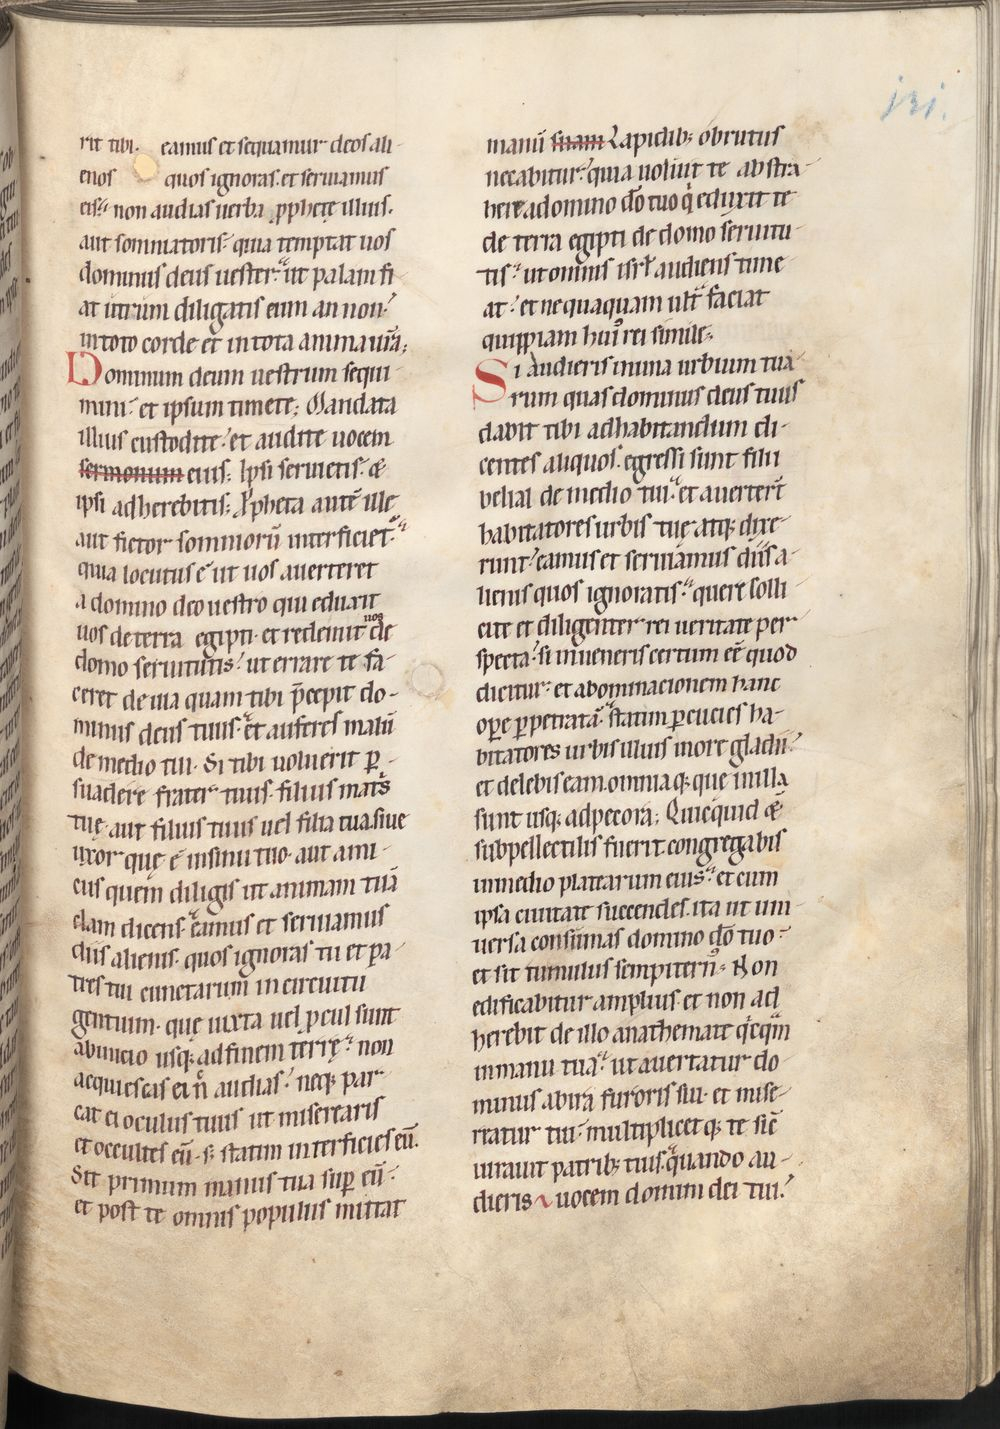 rit tibi. eamus et sequamur deos ali-
enos quos ignoras. et seruiamus
eis. non audias uerba p̱phete illius.
aut somniatoris. quia temptat uos
dominus deus uester. ut palam fi-
at utrum diligatis eum an non.
in toto corde et in tota anima ur̄a;
Dominum deum uestrum sequi-
mini. et ipsum timete; Mandata
illius custodite. et audite uocem
sermonum eius; Ipsi seruietis. &
ipsi adherebitis; P̱pheta autē ille
aut fictor somniorū interficiet.
quia locutus ē ut uos auerteret
a domino deo uestro qui eduxit
uos de terra egipti. et redemit uos de
domo seruitutis. ut errare te fa-
ceret de uia quam tibi p̄cepit do-
minus deus tuus. et auferes malū
de medio tui. Si tibi uoluerit p̱-
suadere frater tuus. filius mat̄s
tuę. aut filius tuus uel filia tua. siue
uxor quę ē in sinu tuo. aut ami-
cus quem diligis ut animam tuā
clam dicens. eamus et seruiamus
diis alienis. quos ignoras tu et pa-
tres tui cunctarum in circuitu
gentium. que iuxta uel p̱cul sunt
ab inicio usq; ad finem terrę. non
acquiescas ei n̄ audias. neq; par-
cat ei oculus tuus ut miserearis
et occultes eū. s; statim interficies eū.
Sit primum manus tua sup̱ eū.
et post te omnis populus mittat
iri.
manū suam Lapidib; obrutus
necabitur. quia uoluit te abstra-
here a domino dō tuo q̇ eduxit te
de terra egipti de domo seruitu-
tis. ut omnis isrł audiens time-
at. et nequaquam ult̄ faciat
quippiam hui᷒ rei simile;
Si audieris in una urbium tua-
rum quas dominus deus tuus
dabit tibi ad habitandum di-
centes aliquos. egressi sunt filii
belial de medio tui. et auerter̄t
habitatores urbis tuę atq; dixe-
runt. eamus et seruiamus diis a-
lienis quos ignoratis. quere solli-
cite et diligenter rei ueritate per-
specta. si inueneris certum eē quod
dicitur. et abominacionem hanc
op̱e p̱petratā. statim p̱cucies ha-
bitatores urbis illius in ore gladii.
et delebis eam. omniaq; que in illa
sunt usq; ad pecora; Quicquid &
subpellectilis fuerit congregabis
in medio platearum eius. et cum
ipsa ciuitate succendes. ita ut uni-
uersa consumas domino dō tuo.
et sit tumulus sempitern᷒. Non
edificabitur amplius. et non ad-
herebit de illo anathemate q̇cq̄m
in manu tua. ut auertatur do-
minus ab ira furoris sui. et mise-
reatur tui. multiplicetq; te sic̄
iurauit patrib; tuis. quando au-
dieris uocem domini dei tui.